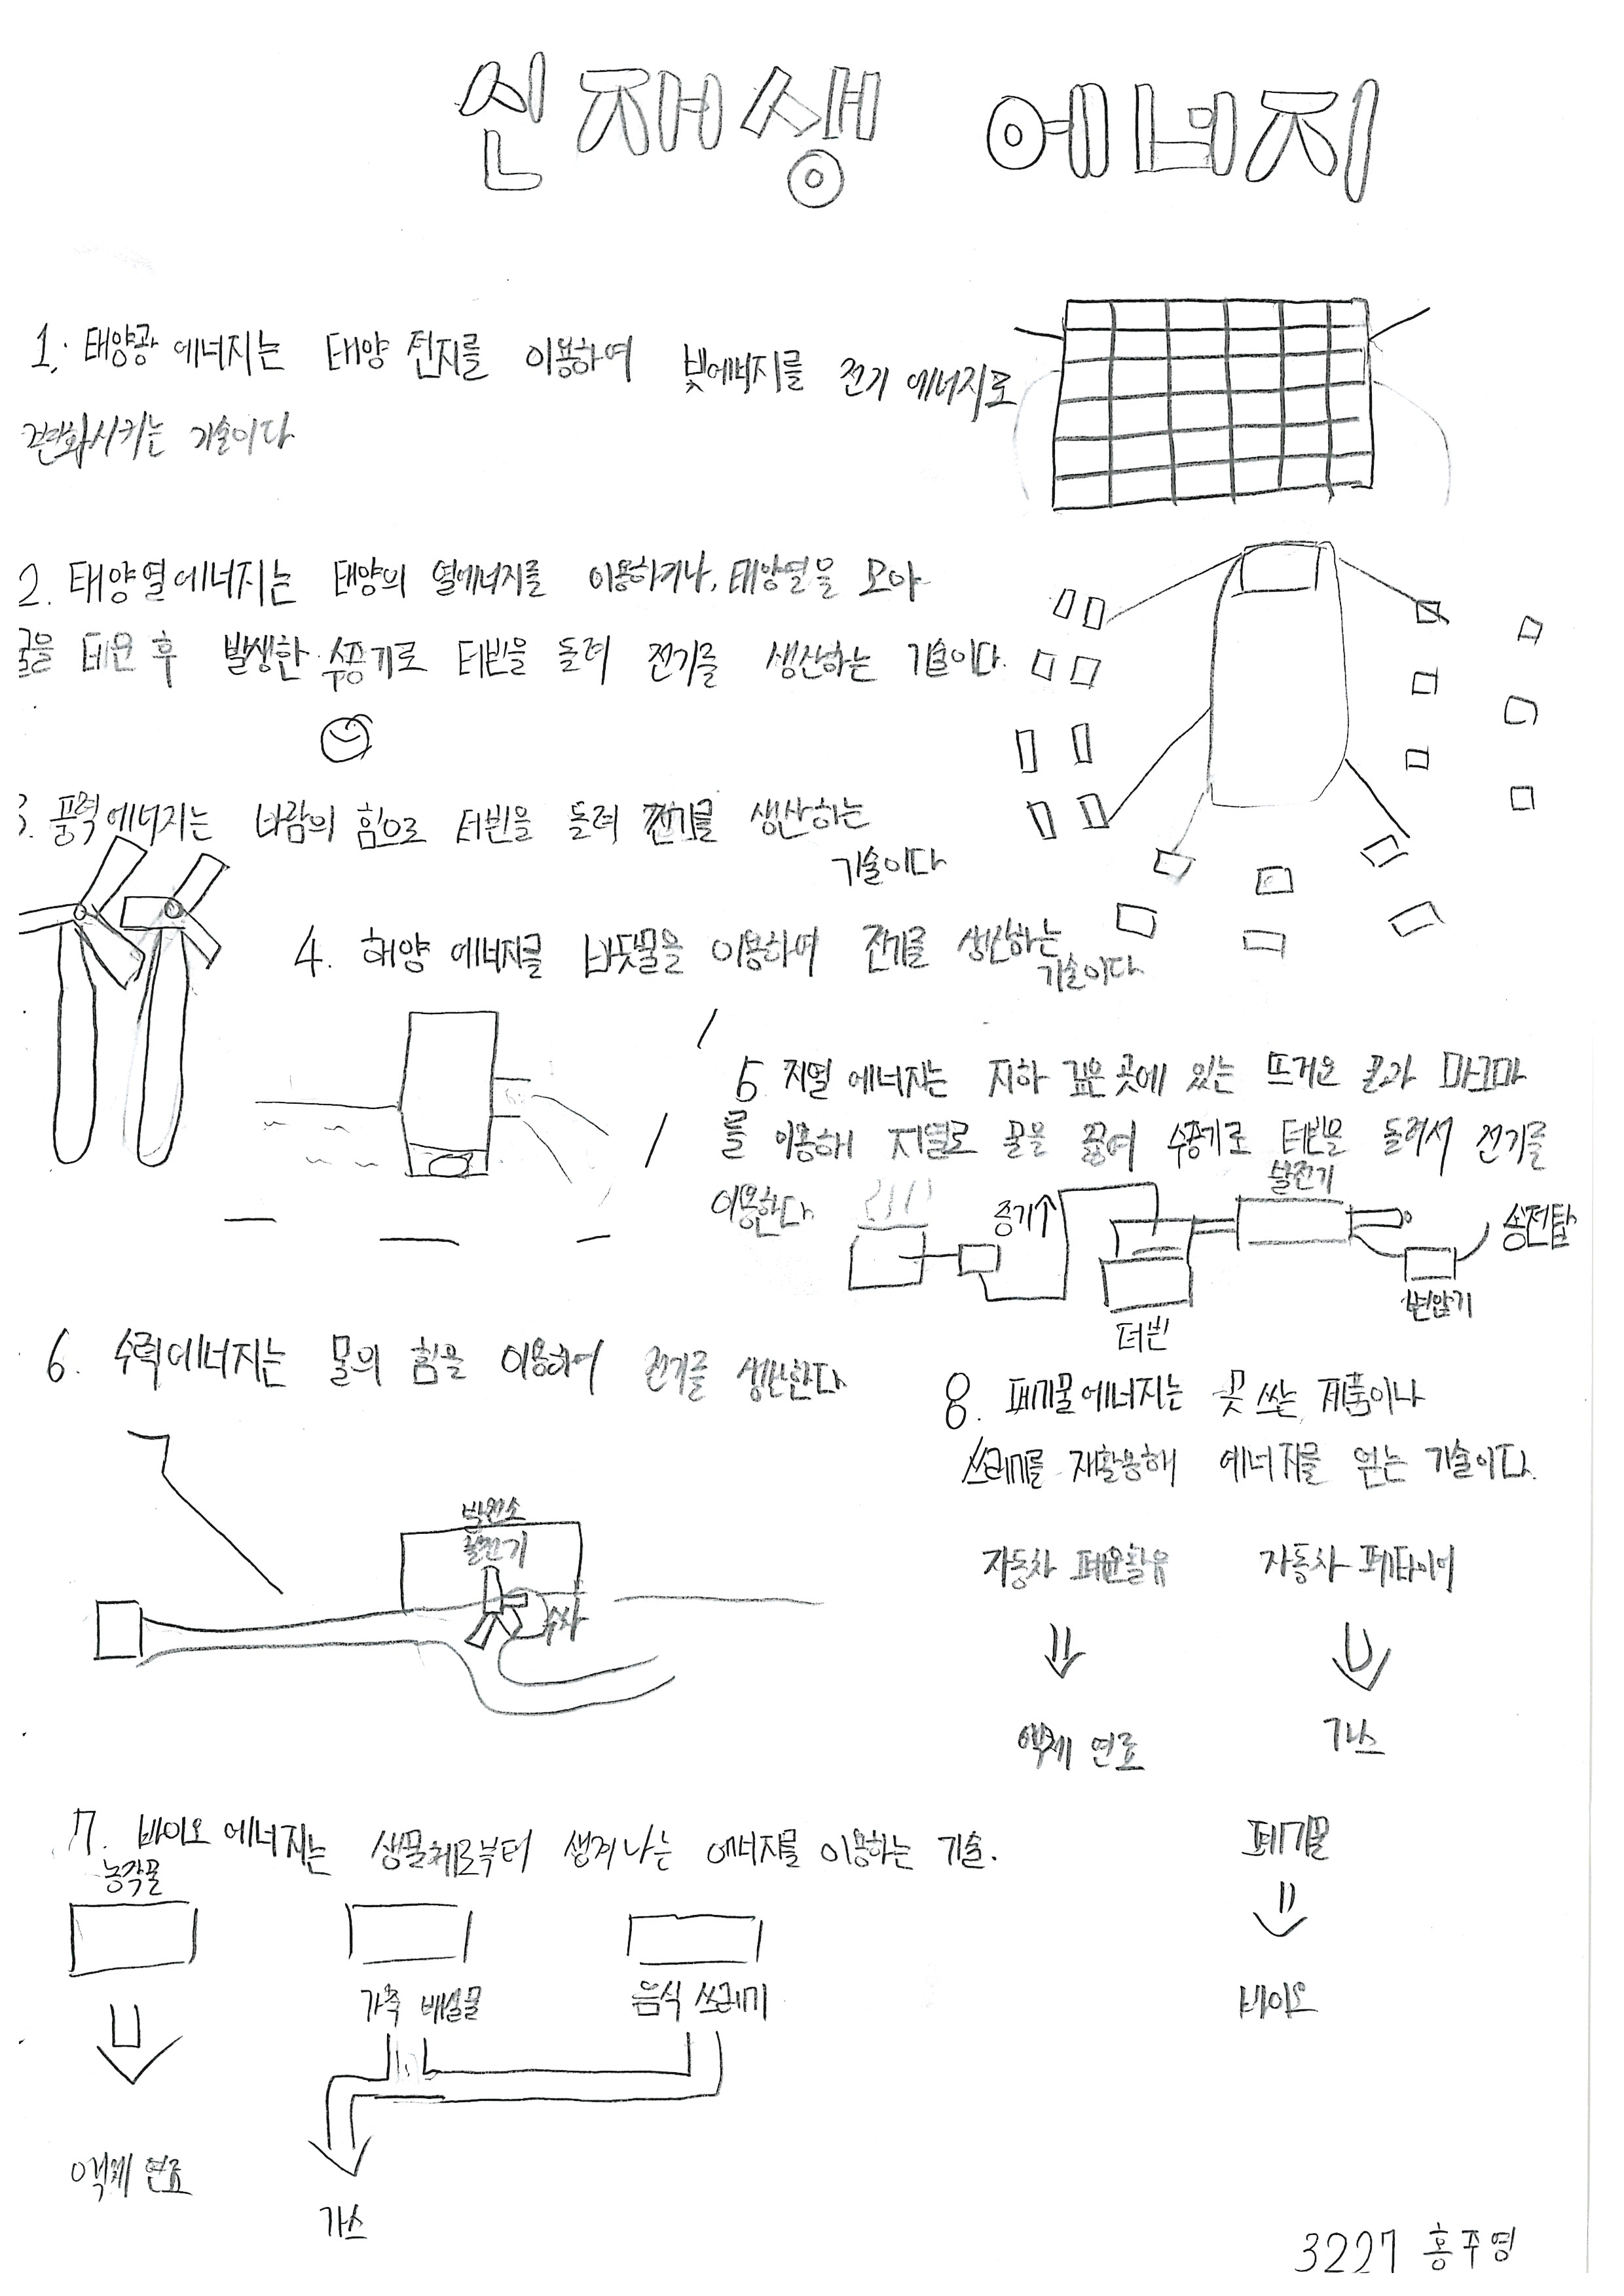 신재생 에너지
1. 태양광 에너지는 태양 전지를 이용하여 빛에너지를 전기 에너지로
변화시키는 기술이다
2. 태양열에너지는 태양의 열에너지를 이용하거나, 태양열을 모아
물을 데운 후 발생한 수증기로 터빈을 돌려 전기를 생산하는 기술이다.
3. 풍력에너지는 바람의 힘으로 터빈을 돌려 전기를 생산하는
기술이다
4. 해양 에너지를 바닷물을 이용하여 전기를 생산하는
기술이다
5 지열 에너지는 지하 깊은 곳에 있는 뜨거운 물과 마그마
를 이용해 지열로 물을 끓여 수증기로 터빈을 돌려서 전기를
이용한다
증기↑
발전기
송전탑
변압기
터빈
6. 수력에너지는 물의 힘을 이용하여 전기를 생산한다
발전소
발전기
수차
8. 폐기물에너지는 못 쓰는 제품이나
쓰레기를 재활용해 에너지를 얻는 기술이다.
자동차 폐윤활유 자동차 폐타이어
액체 연료 가스
폐기물
바이오
7. 바이오 에너지는 생물체로부터 생겨나는 에너지를 이용하는 기술.
농작물
가축 배설물 음식 쓰레기
액체 연료
가스
3227 홍주영